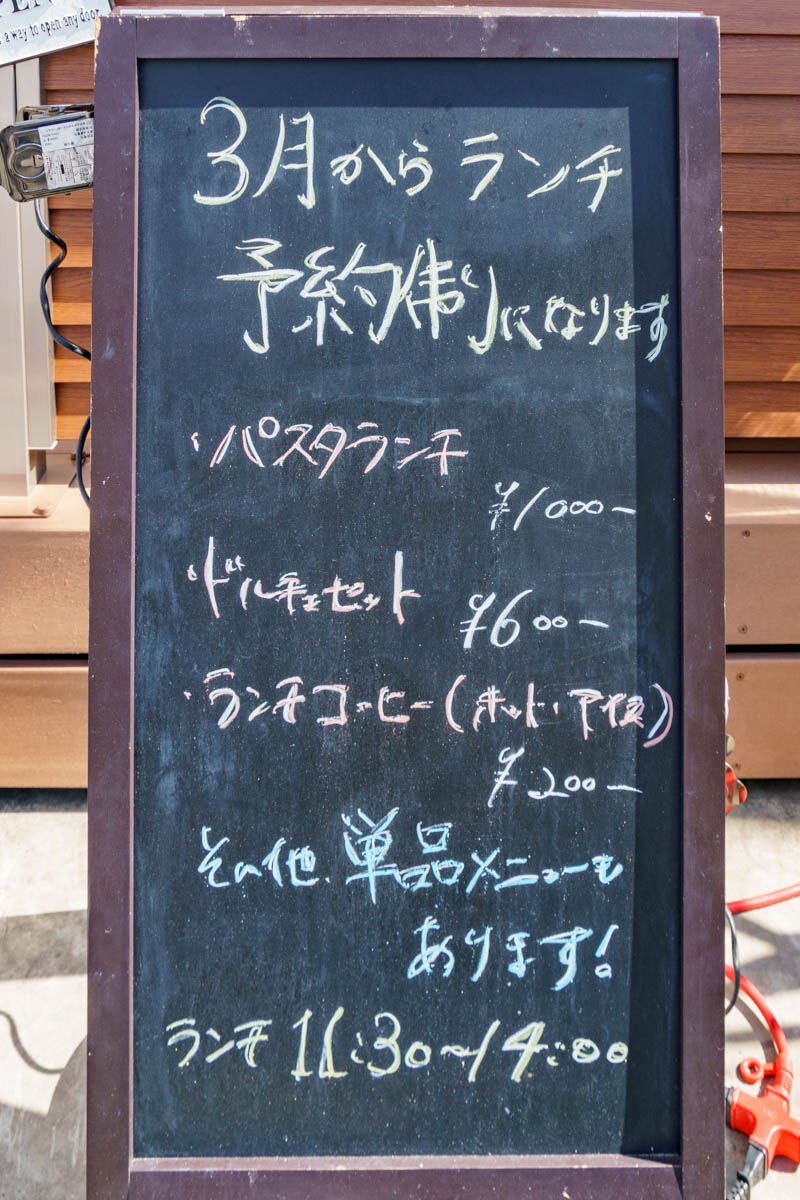 s a way to open any door
3月からランチ
予約制になります
・パスタランチ
¥1000-
・ドルチェセット
¥600-
・ランチコーヒー(ホット・アイス)
¥200-
その他、単品メニューも
あります!
ランチ 11:30~14:00